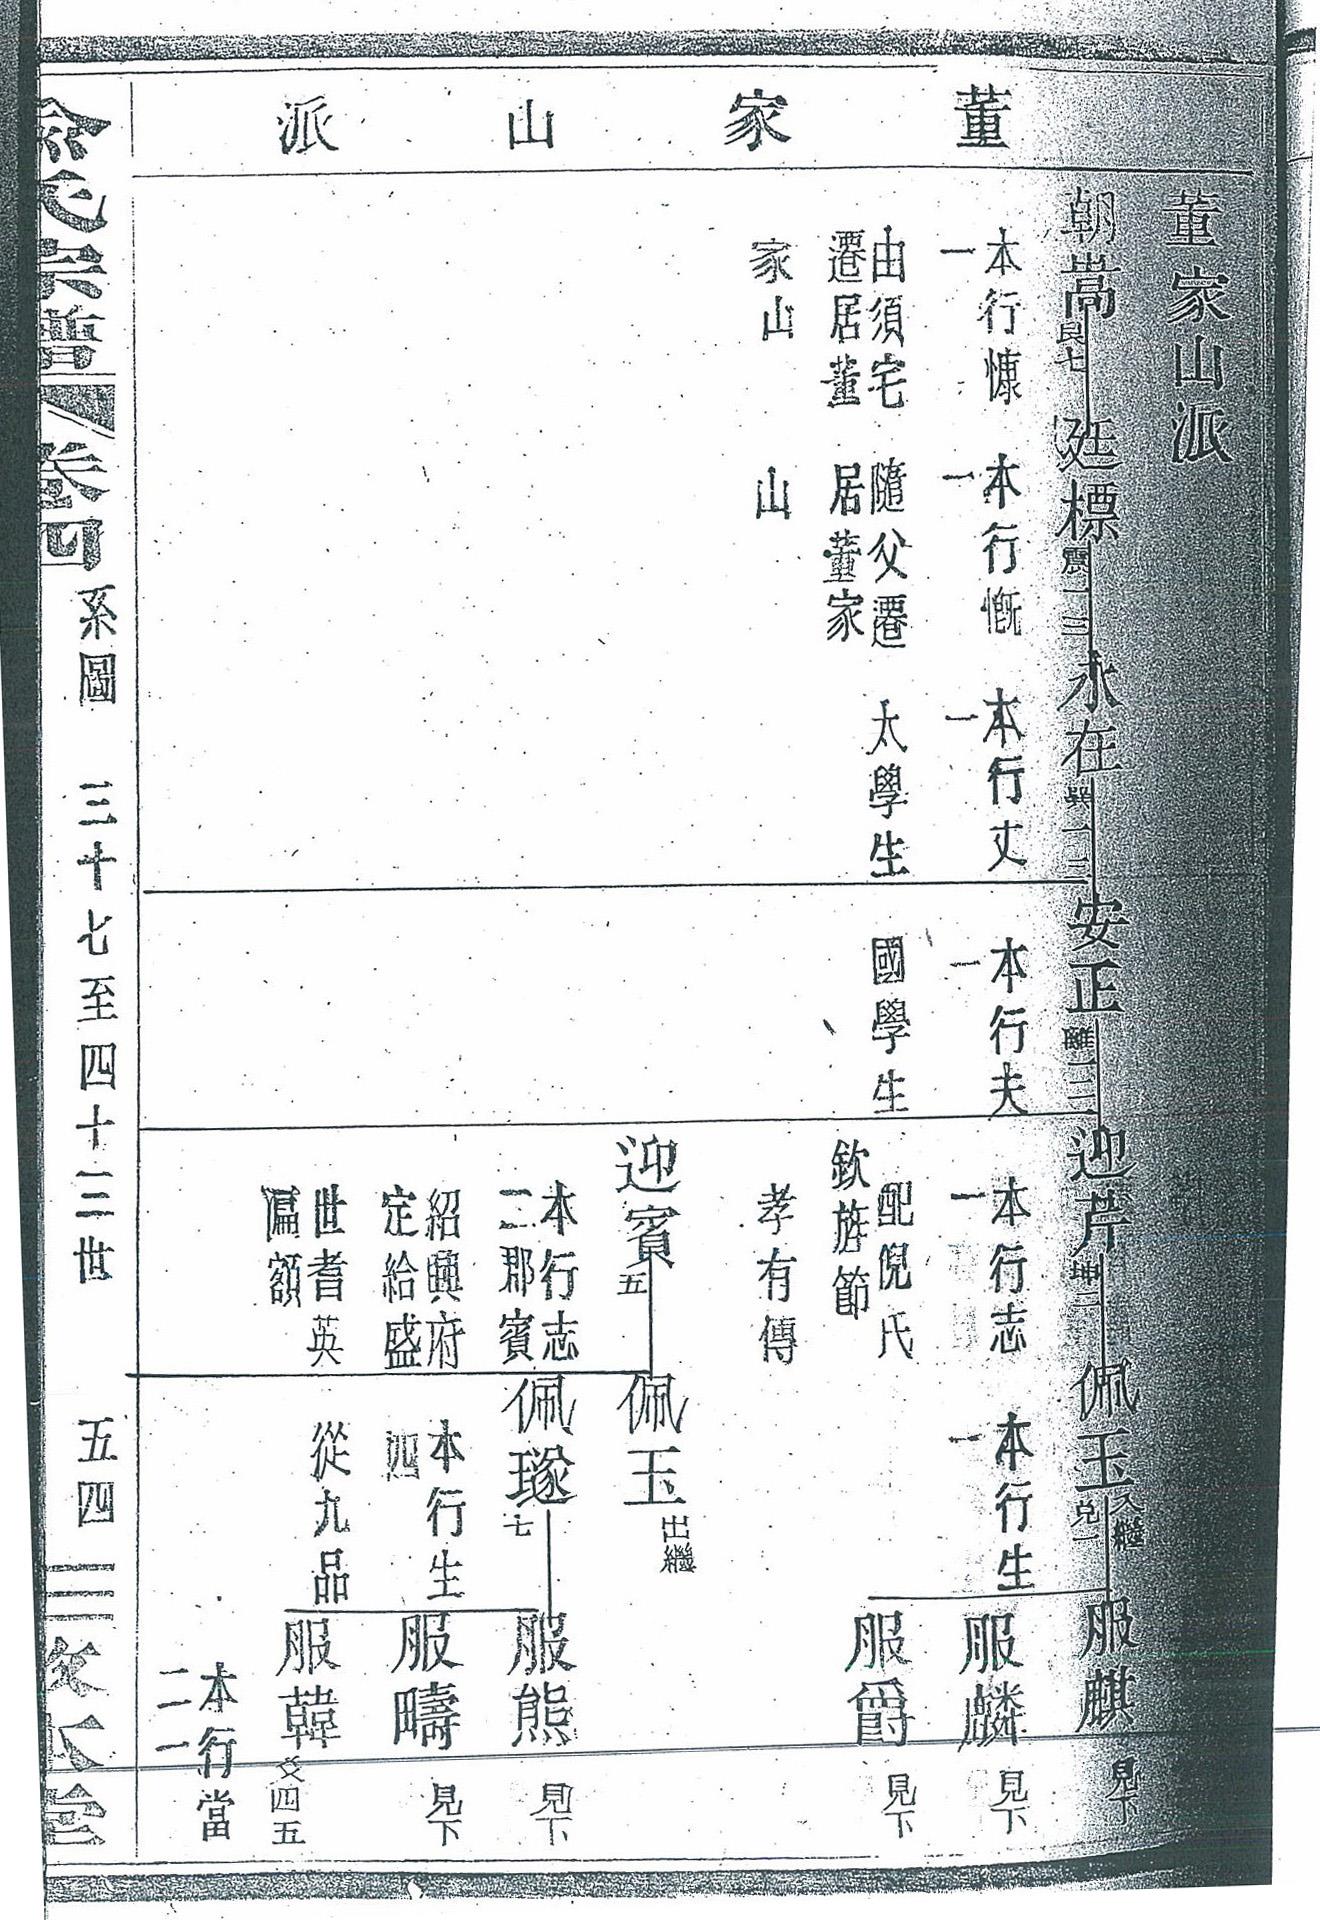 董家山派
董家山派
朝嵩 良七
本行慷
一
由須宅
遷居董
家山
廷標 震一三
本行慨
一
隨父遷
居董家
山
永在 巽一三
本行丈
一
太學生
安正 離一三
本行夫
一
國學生
迎芹 坤二
本行志
一
配倪氏
欽旌節
孝有傳
迎賓 五
本行志
二郡賓
紹興府
定給盛
世耆英
匾額
佩玉 入繼 兌一
本行生
一
佩玉 出繼
佩璲 七
本行生
四
從九品
服麒 見下
服麟 見下
服爵 見下
服熊 見下
服疇 見下
服韓 爻四五
本行當
二一
俞氏宗譜
卷四 系圖 三十七至四十二世 五四